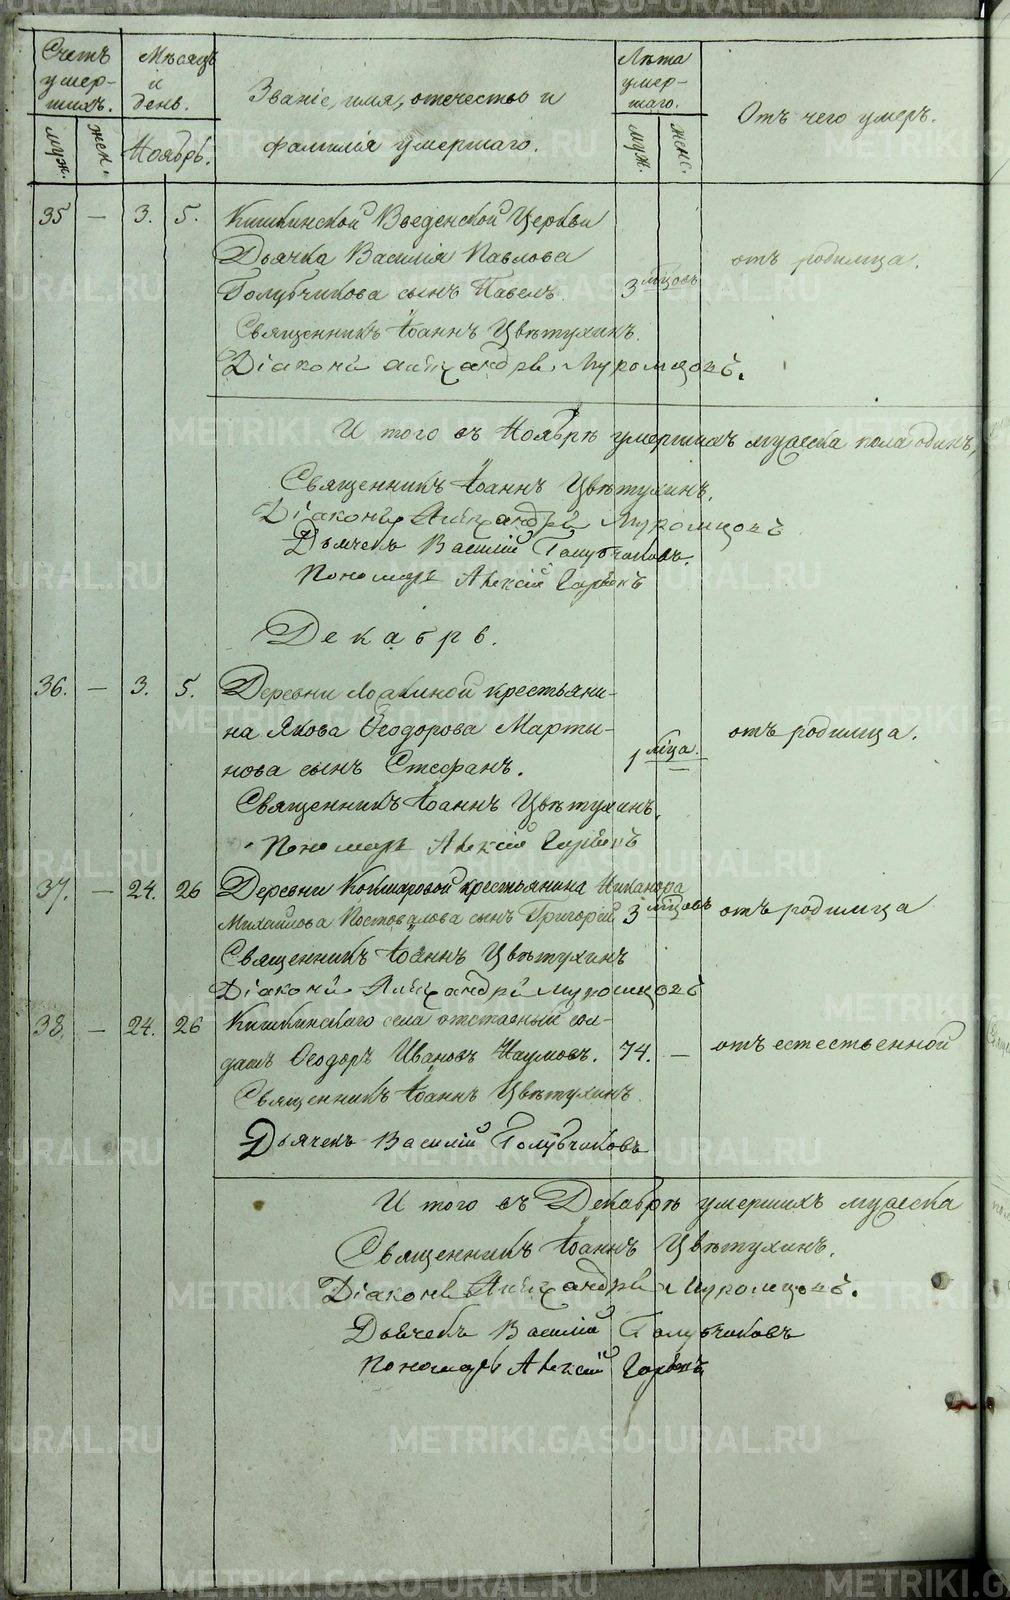 Счетъ умер-шихъ.
Мѣсяцъ и день.
Званіе, имя, отечество и
фамилія умершаго.
Лѣта умер-шаго.
Отъ чего умеръ.
муж. жен. Ноябрь. муж. женс.
35 — 3. 5. Кишкинской Введенской Церкви
Дьячка Василія Павлова
отъ родимца.
Голубчикова сынъ Павелъ. 3 мѣцовъ
Священникъ Іоаннъ Цвѣтухинъ.
Діаконъ Александръ Муромцовъ.
И того въ Ноябрѣ умершихъ мужеска пола одинъ,
Священникъ Іоаннъ Цвѣтухинъ.
Діаконъ Александръ Муромцовъ
Дьячекъ Василій Голубчиковъ.
Пономарь Алексій
Декабрь.
36. — 3. 5. Деревни крестьяни-
на Якова Ѳеодорова Марты- отъ родимца.
нова сынъ Стефанъ. 1 мѣца.
Священникъ Іоаннъ Цвѣтухинъ.
Пономарь Алексій
37. — 24. 26 Деревни крестьянина Никанора
Михайлова Постовалова сынъ Григорій 3 мѣцовъ отъ родимца
Священникъ Іоаннъ Цвѣтухинъ
Діаконъ Александръ Муромцовъ
38. — 24. 26 Кишкинскаго села отставный сол-
датъ Ѳеодоръ Ивановъ Наумовъ. 74. — отъ естественной
Священникъ Іоаннъ Цвѣтухинъ
Дьячекъ Василій Голубчиковъ
И того въ Декабрѣ умершихъ мужеска
Священникъ Іоаннъ Цвѣтухинъ.
Діаконъ Александръ Муромцовъ.
Дьячекъ Василій Голубчиковъ
Пономарь Алексій
METRIKI.GASO-URAL.RU